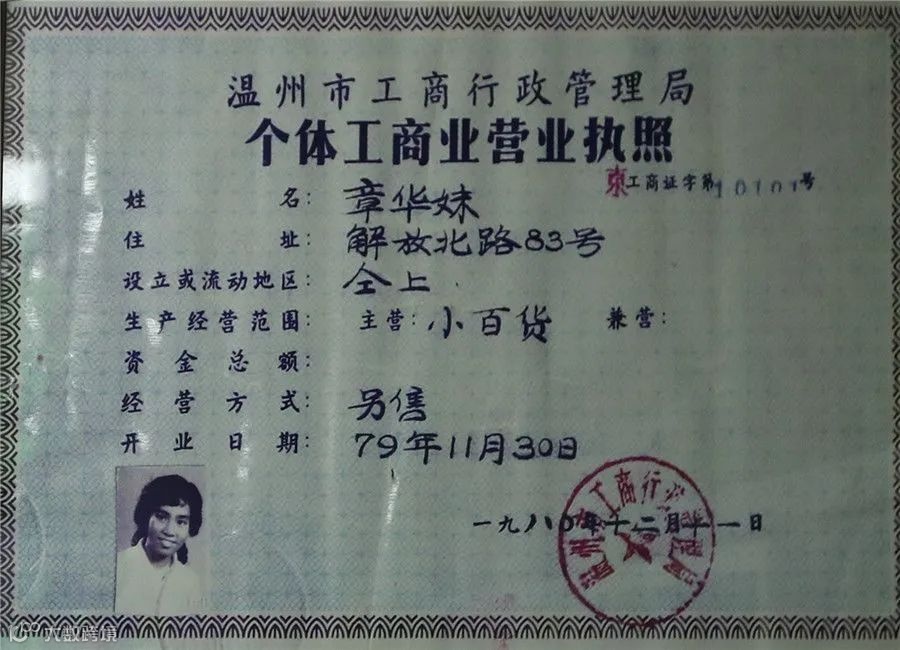 温州市工商行政管理局
个体工商业营业执照
东工商证字第10101号
姓名：章华妹
住址：解放北路83号
设立或流动地区：仝上
生产经营范围：主营：小百货 兼营：
资金总额：
经营方式：另售
开业日期：79年11月30日
一九八〇年十二月十一日
温州市工商行政管理局
大数跨境